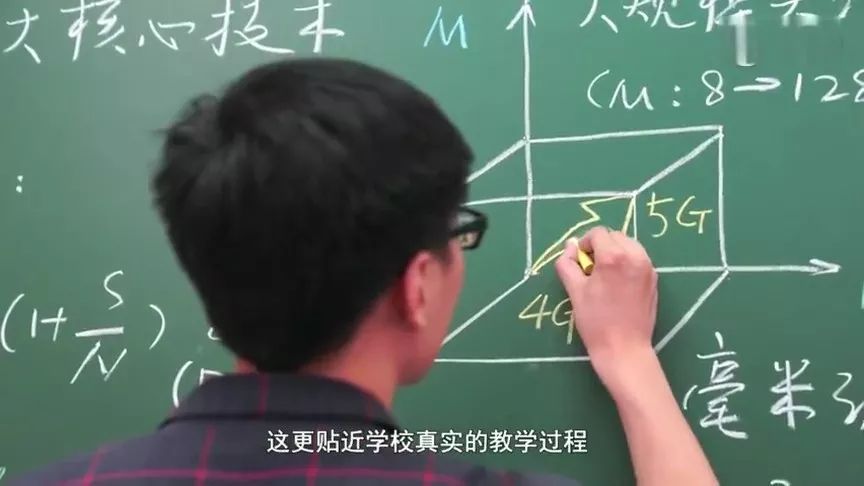 大核心技术
M
大规模天
(M:8→128
:
5G
4G
(1+S/N)
毫米
这更贴近学校真实的教学过程